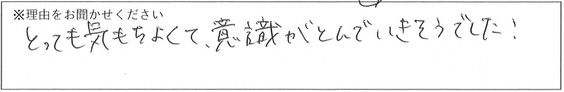 ※理由をお聞かせください
とっても気もちよくて、意識がとんでいきそうでした!